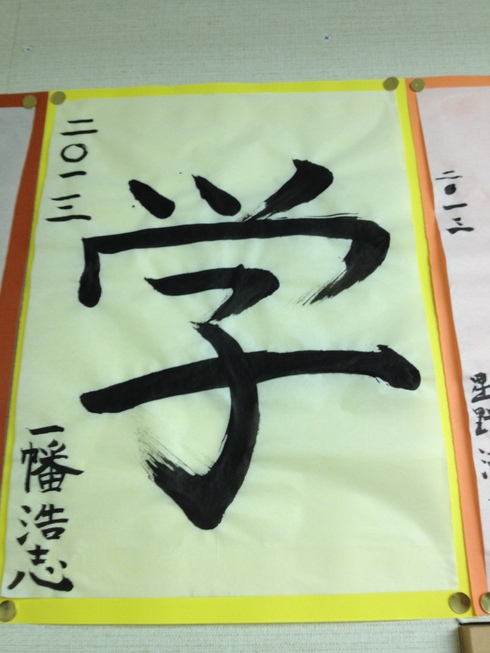 学
二〇一三
一幡浩志
二〇一三
星野